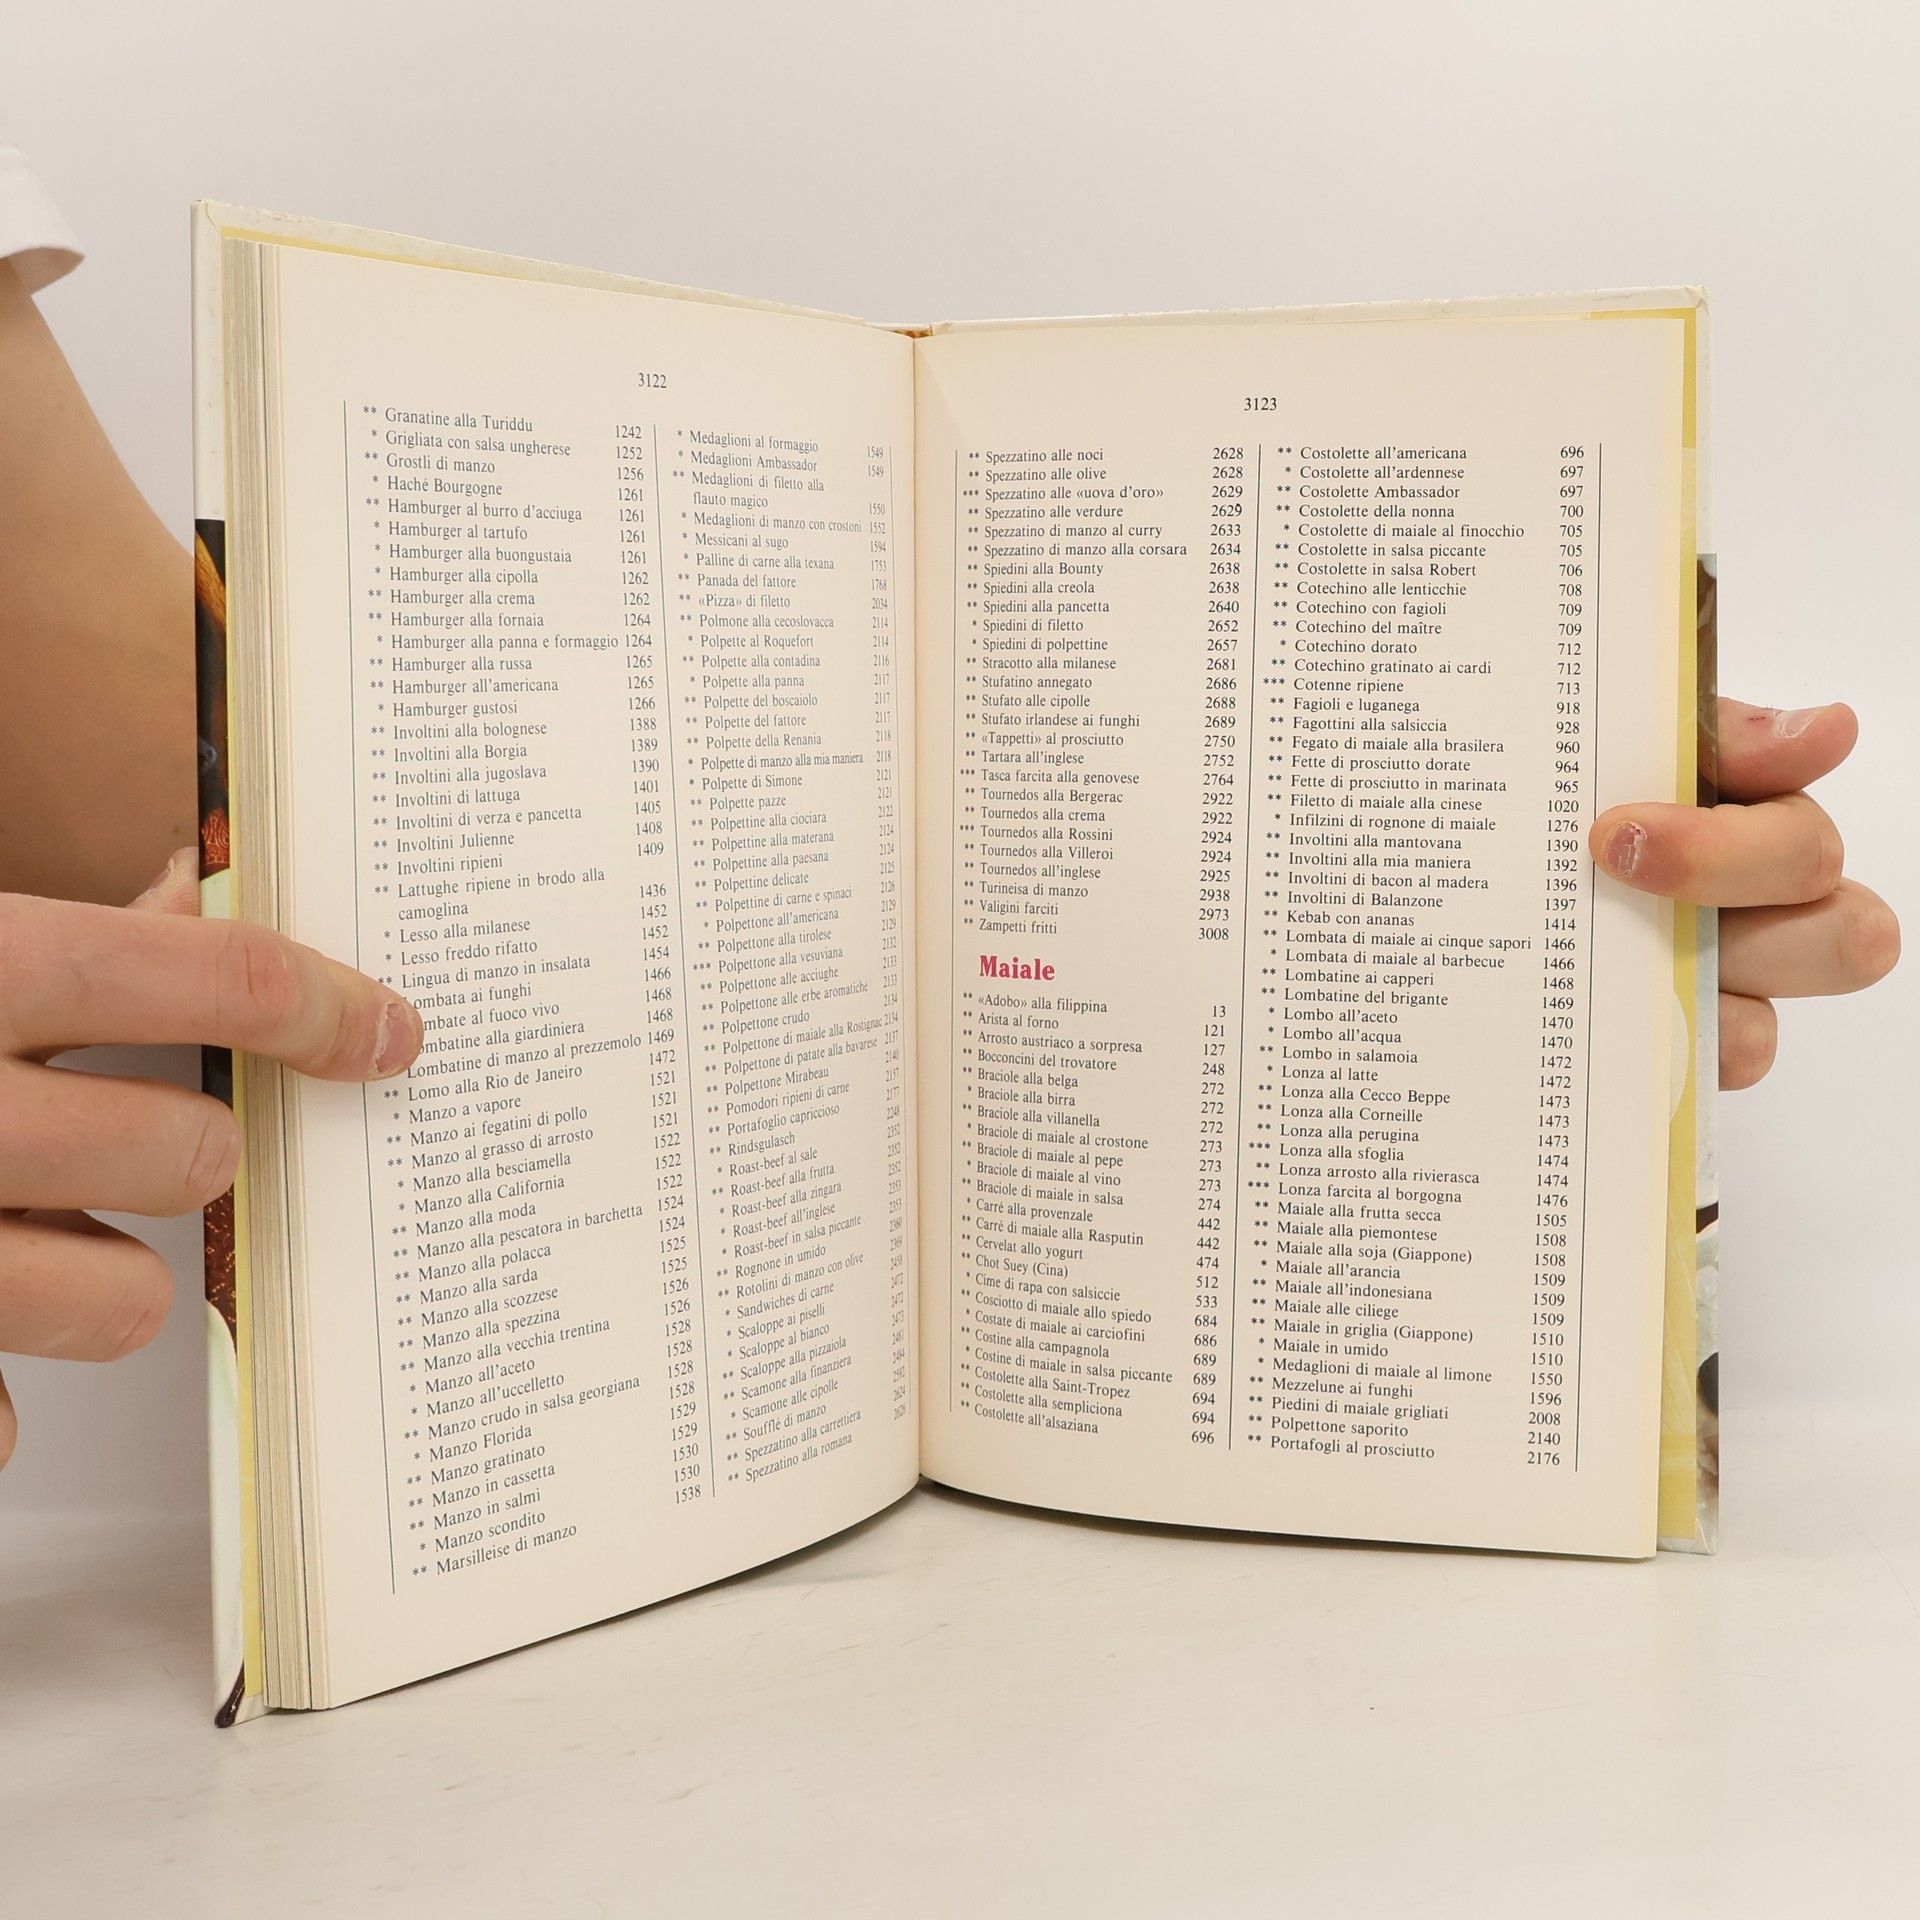 3122
** Granatine alla Turiddu 1242
* Grigliata con salsa ungherese 1252
** Grostli di manzo 1256
* Haché Bourgogne 1261
** Hamburger al burro d'acciuga 1261
* Hamburger al tartufo 1261
* Hamburger alla buongustaia 1261
* Hamburger alla cipolla 1262
** Hamburger alla crema 1262
** Hamburger alla fornaia 1264
* Hamburger alla panna e formaggio 1264
** Hamburger alla russa 1265
** Hamburger all'americana 1265
* Hamburger gustosi 1266
** Involtini alla bolognese 1388
** Involtini alla Borgia 1389
** Involtini alla jugoslava 1390
** Involtini di lattuga 1401
** Involtini di verza e pancetta 1405
** Involtini Julienne 1408
** Involtini ripieni 1409
** Lattughe ripiene in brodo alla
camoglina 1436
* Lesso alla milanese 1452
* Lesso freddo rifatto 1452
** Lingua di manzo in insalata 1454
ombata ai funghi 1466
mbate al fuoco vivo 1468
ombatine alla giardiniera 1468
Lombatine di manzo al prezzemolo 1469
** Lomo alla Rio de Janeiro 1472
* Manzo a vapore 1521
** Manzo ai fegatini di pollo 1521
** Manzo al grasso di arrosto 1522
* Manzo alla besciamella 1522
* Manzo alla California 1522
** Manzo alla moda
** Manzo alla pescatora in barchetta 1524
** Manzo alla polacca 1524
** Manzo alla sarda 1525
** Manzo alla scozzese 1525
** Manzo alla spezzina 1526
** Manzo alla vecchia trentina 1526
* Manzo all'aceto 1528
* Manzo all'uccelletto 1528
** Manzo crudo in salsa georgiana 1528
* Manzo Florida 1528
** Manzo gratinato 1529
** Manzo in cassetta 1529
** Manzo in salmi 1530
* Manzo scondito 1530
** Marsilleise di manzo 1538
* Medaglioni al formaggio 1549
* Medaglioni Ambassador 1549
** Medaglioni di filetto alla
flauto magico 1550
* Medaglioni di manzo con crostoni 1552
* Messicani al sugo 1594
* Palline di carne alla texana 1753
** Panada del fattore 1768
** «Pizza» di filetto 2034
** Polmone alla cecoslovacca 2114
* Polpette al Roquefort 2114
** Polpette alla contadina 2116
* Polpette alla panna 2117
** Polpette del boscaiolo 2117
** Polpette del fattore 2117
** Polpette della Renania 2118
* Polpette di manzo alla mia maniera 2118
* Polpette di Simone 2121
** Polpette pazze 2121
** Polpettine alla ciociara 2122
** Polpettine alla materana 2124
** Polpettine alla paesana 2124
** Polpettine delicate 2125
** Polpettine di carne e spinaci 2126
* Polpettone all'americana 2129
** Polpettone alla tirolese 2129
*** Polpettone alla vesuviana 2132
** Polpettone alle acciughe 2133
** Polpettone alle erbe aromatiche 2133
** Polpettone crudo 2134
** Polpettone di maiale alla Rostignac 2134
** Polpettone di patate alla bavarese 2137
** Polpettone Mirabeau 2140
** Pomodori ripieni di carne 2157
** Portafoglio capriccioso 2177
** Rindsgulasch 2248
* Roast-beef al sale 2352
** Roast-beef alla frutta 2352
* Roast-beef alla zingara 2352
* Roast-beef all'inglese 2353
* Roast-beef in salsa piccante 2353
** Rognone in umido 2360
** Rotolini di manzo con olive 2369
* Sandwiches di carne 2458
* Scaloppe ai piselli 2472
* Scaloppe al bianco 2472
** Scaloppe alla pizzaiola 2473
** Scamone alla finanziera 2481
* Scamone alle cipolle 2484
** Soufflé di manzo 2592
** Spezzatino alla carrettiera 2624
** Spezzatino alla romana 2626
3123
** Spezzatino alle noci 2628
** Spezzatino alle olive 2628
*** Spezzatino alle «uova d'oro» 2629
** Spezzatino alle verdure 2629
** Spezzatino di manzo al curry 2633
** Spezzatino di manzo alla corsara 2634
** Spiedini alla Bounty 2638
** Spiedini alla creola 2638
** Spiedini alla pancetta 2640
* Spiedini di filetto 2652
* Spiedini di polpettine 2657
** Stracotto alla milanese 2681
** Stufatino annegato 2686
** Stufato alle cipolle 2688
** Stufato irlandese ai funghi 2689
** «Tappetti» al prosciutto 2750
** Tartara all'inglese 2752
*** Tasca farcita alla genovese 2764
** Tournedos alla Bergerac 2922
** Tournedos alla crema 2922
*** Tournedos alla Rossini 2924
** Tournedos alla Villeroi 2924
** Tournedos all'inglese 2925
** Turineisa di manzo 2938
** Valigini farciti 2973
** Zampetti fritti 3008
Maiale
** «Adobo» alla filippina 13
** Arista al forno 121
** Arrosto austriaco a sorpresa 127
** Bocconcini del trovatore 248
** Braciole alla belga 272
* Braciole alla birra 272
** Braciole alla villanella 272
* Braciole di maiale al crostone 273
** Braciole di maiale al pepe 273
* Braciole di maiale al vino 273
** Braciole di maiale in salsa 274
* Carré alla provenzale 442
** Carré di maiale alla Rasputin 442
** Cervelat allo yogurt 474
** Chot Suey (Cina) 512
* Cime di rapa con salsiccie 533
** Cosciotto di maiale allo spiedo 684
* Costate di maiale ai carciofini 686
** Costine alla campagnola 689
* Costine di maiale in salsa piccante 689
** Costolette alla Saint-Tropez 694
** Costolette alla sempliciona 694
** Costolette all'alsaziana 696
** Costolette all'americana 696
* Costolette all'ardennese 697
** Costolette Ambassador 697
** Costolette della nonna 700
* Costolette di maiale al finocchio 705
** Costolette in salsa piccante 705
** Costolette in salsa Robert 706
** Cotechino alle lenticchie 708
** Cotechino con fagioli 709
** Cotechino del maître 709
* Cotechino dorato 712
** Cotechino gratinato ai cardi 712
*** Cotenne ripiene 713
** Fagioli e luganega 918
** Fagottini alla salsiccia 928
** Fegato di maiale alla brasilera 960
** Fette di prosciutto dorate 964
** Fette di prosciutto in marinata 965
** Filetto di maiale alla cinese 1020
* Infilzini di rognone di maiale 1276
** Involtini alla mantovana 1390
** Involtini alla mia maniera 1392
** Involtini di bacon al madera 1396
** Involtini di Balanzone 1397
** Kebab con ananas 1414
** Lombata di maiale ai cinque sapori 1466
* Lombata di maiale al barbecue 1466
** Lombatine ai capperi 1468
** Lombatine del brigante 1469
* Lombo all'aceto 1470
* Lombo all'acqua 1470
** Lombo in salamoia 1472
* Lonza al latte 1472
** Lonza alla Cecco Beppe 1473
** Lonza alla Corneille 1473
** Lonza alla perugina 1473
*** Lonza alla sfoglia 1474
** Lonza arrosto alla rivierasca 1474
*** Lonza farcita al borgogna 1476
** Maiale alla frutta secca 1505
** Maiale alla piemontese 1508
** Maiale alla soja (Giappone) 1508
* Maiale all'arancia 1509
** Maiale all'indonesiana 1509
** Maiale alle ciliege 1509
** Maiale in griglia (Giappone) 1510
* Maiale in umido 1510
* Medaglioni di maiale al limone 1550
** Mezzelune ai funghi 1596
** Piedini di maiale grigliati 2008
** Polpettone saporito 2140
** Portafogli al prosciutto 2176